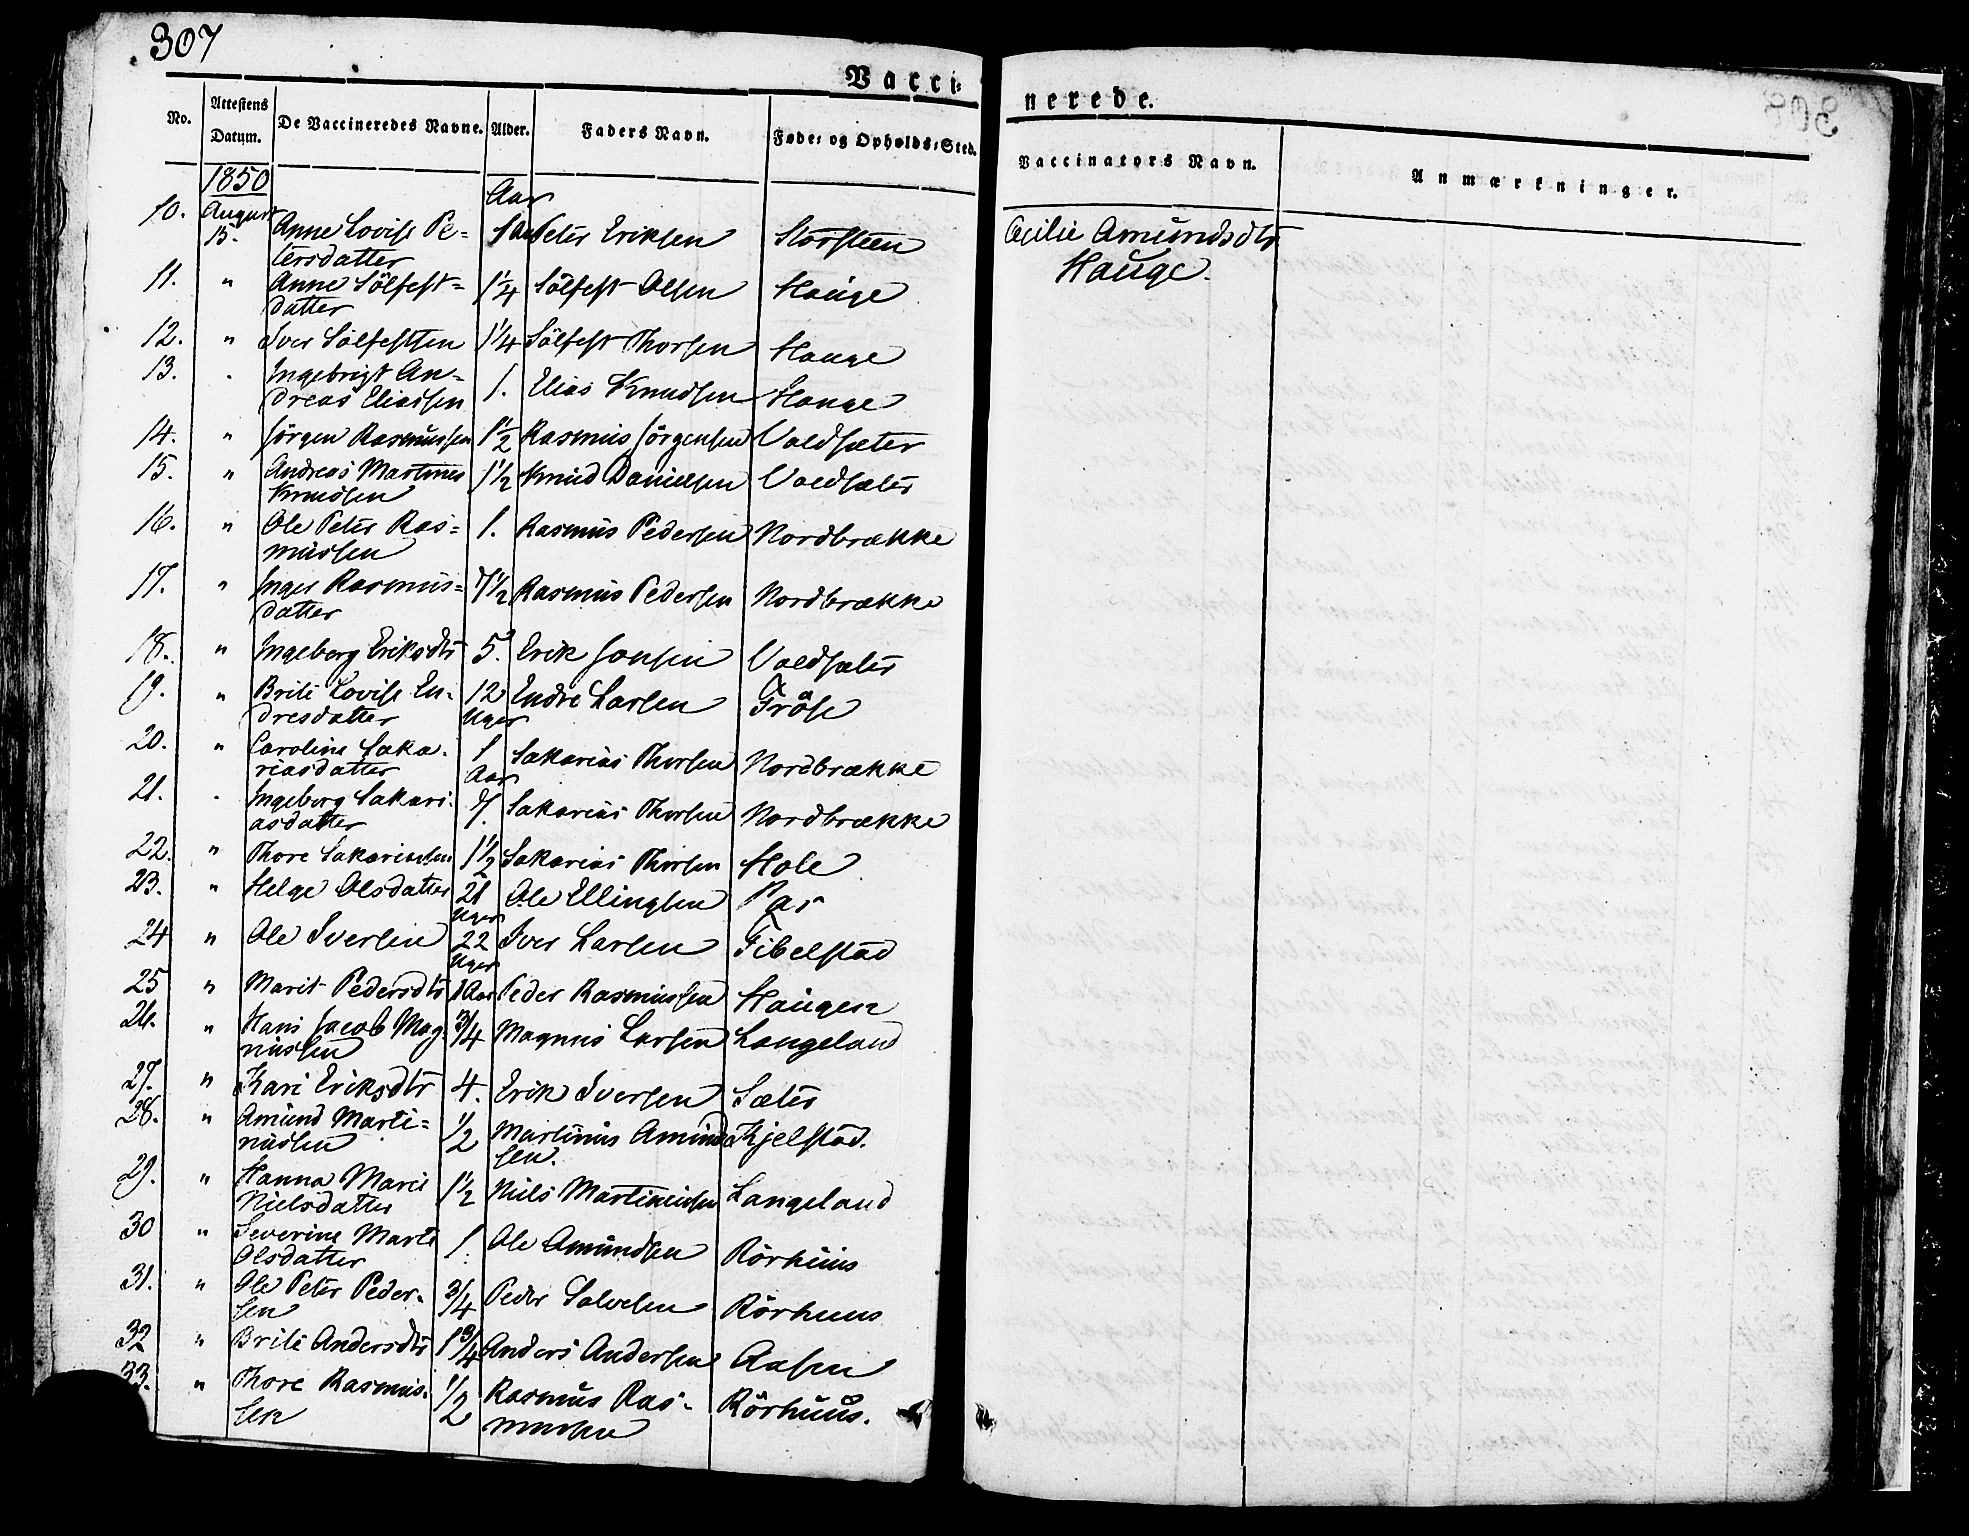 307
Vacci-
nerede.
No. Attestens Datum. De Vaccineredes Navne. Alder. Faders Navn. Føde- og Opholds-Sted. Vaccinators Navn. Anmærkninger.
1850 Aar
10. August 15. Anne Lovise Pe- 1 Aar Peter Eriksen Storsteen Cecilie Amundsdtr
tersdatter Hauge.
11. " Anne Sölfest- 1¼ Sölfest Olsen Hauge
datter
12. " Iver Sölfestsen 1¼ Sölfest Thorsen Hauge
13. " Ingebrigt An- 1. Elias Knudsen Hauge
dreas Eliassen
14. " Jörgen Rasmussen 1½ Rasmus Jörgensen Voldsæter
15. " Andreas Martinus 1½ Knud Danielsen Voldsæter
Knudsen
16. " Ole Peter Ras- 1. Rasmus Pedersen Nordbrække
mussen
17. " Inger Rasmus- 7½ Rasmus Pedersen Nordbrække
datter
18. " Ingeborg Eriksdtr 5. Erik Jonsen Voldsæter
19. " Brite Lovise En- 12 Endre Larsen Fröse
dresdatter Uger
20. " Caroline Saka- 1 Sakarias Thorsen Nordbrække
riasdatter Aar
21. " Ingeborg Sakari- 7. Sakarias Thorsen Nordbrække
asdatter
22. " Thore Sakariassen 1½ Sakarias Thorsen Hole
23. " Helge Olsdatter 21 Ole Ellingsen Par
Uger
24 " Ole Iversen 22 Iver Larsen Fibelstad
Uger
25 " Marit Pedersdtr 1 Aar Peder Rasmussen Haugen
26. " Hans Jacob Mag- ¾ Magnus Larsen Langeland
nussen
27. " Kari Eriksdtr 4. Erik Iversen Sæter
28. " Amund Marti- ½ Martinus Amund Kjelstad.
nussen sen.
29. " Hanna Marie 1½ Niels Martinussen Langeland
Nielsdatter
30 " Severine Marte 1. Ole Amundsen Rörhuus
Olsdatter
31. " Ole Peter Peder- ¾ Peder Salvesen Rörhuus
sen
32 " Brite Andersdtr 1¾ Anders Andersen Aasen
33. " Thore Rasmus- ½ Rasmus Ras- Rörhuus.
sen mussen